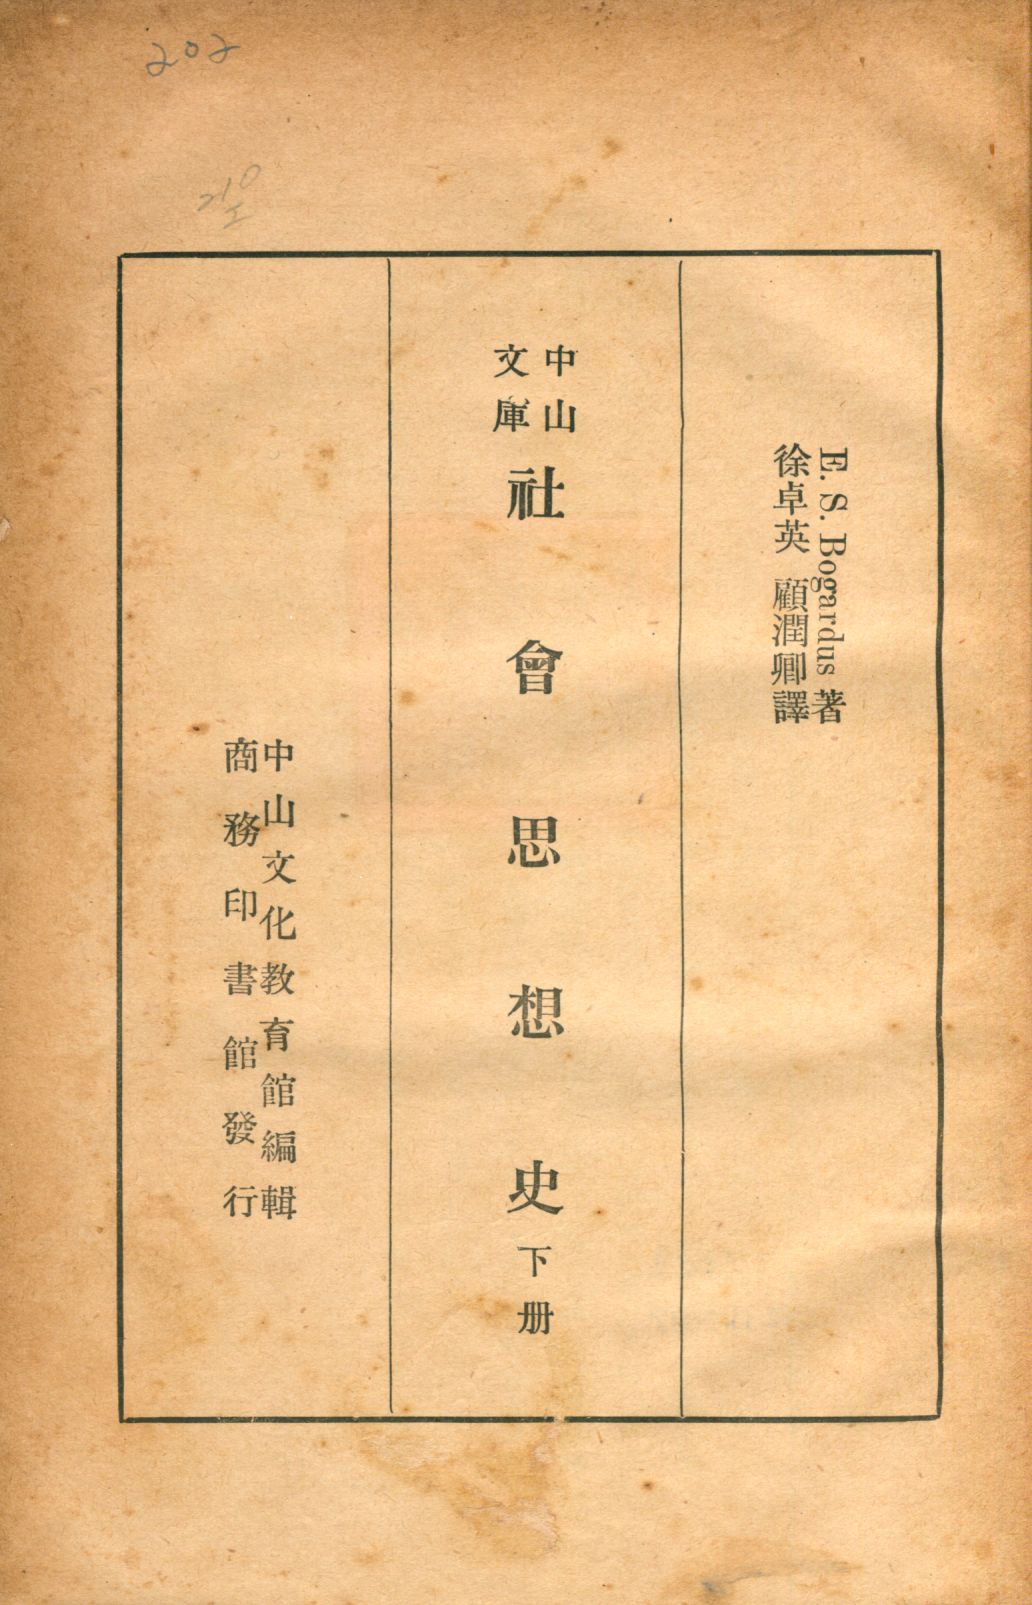 202
E. S. Bogardus 著
徐卓英 顧潤卿譯
中山
文庫
社會思想史 下册
中山文化教育館編輯
商務印書館發行